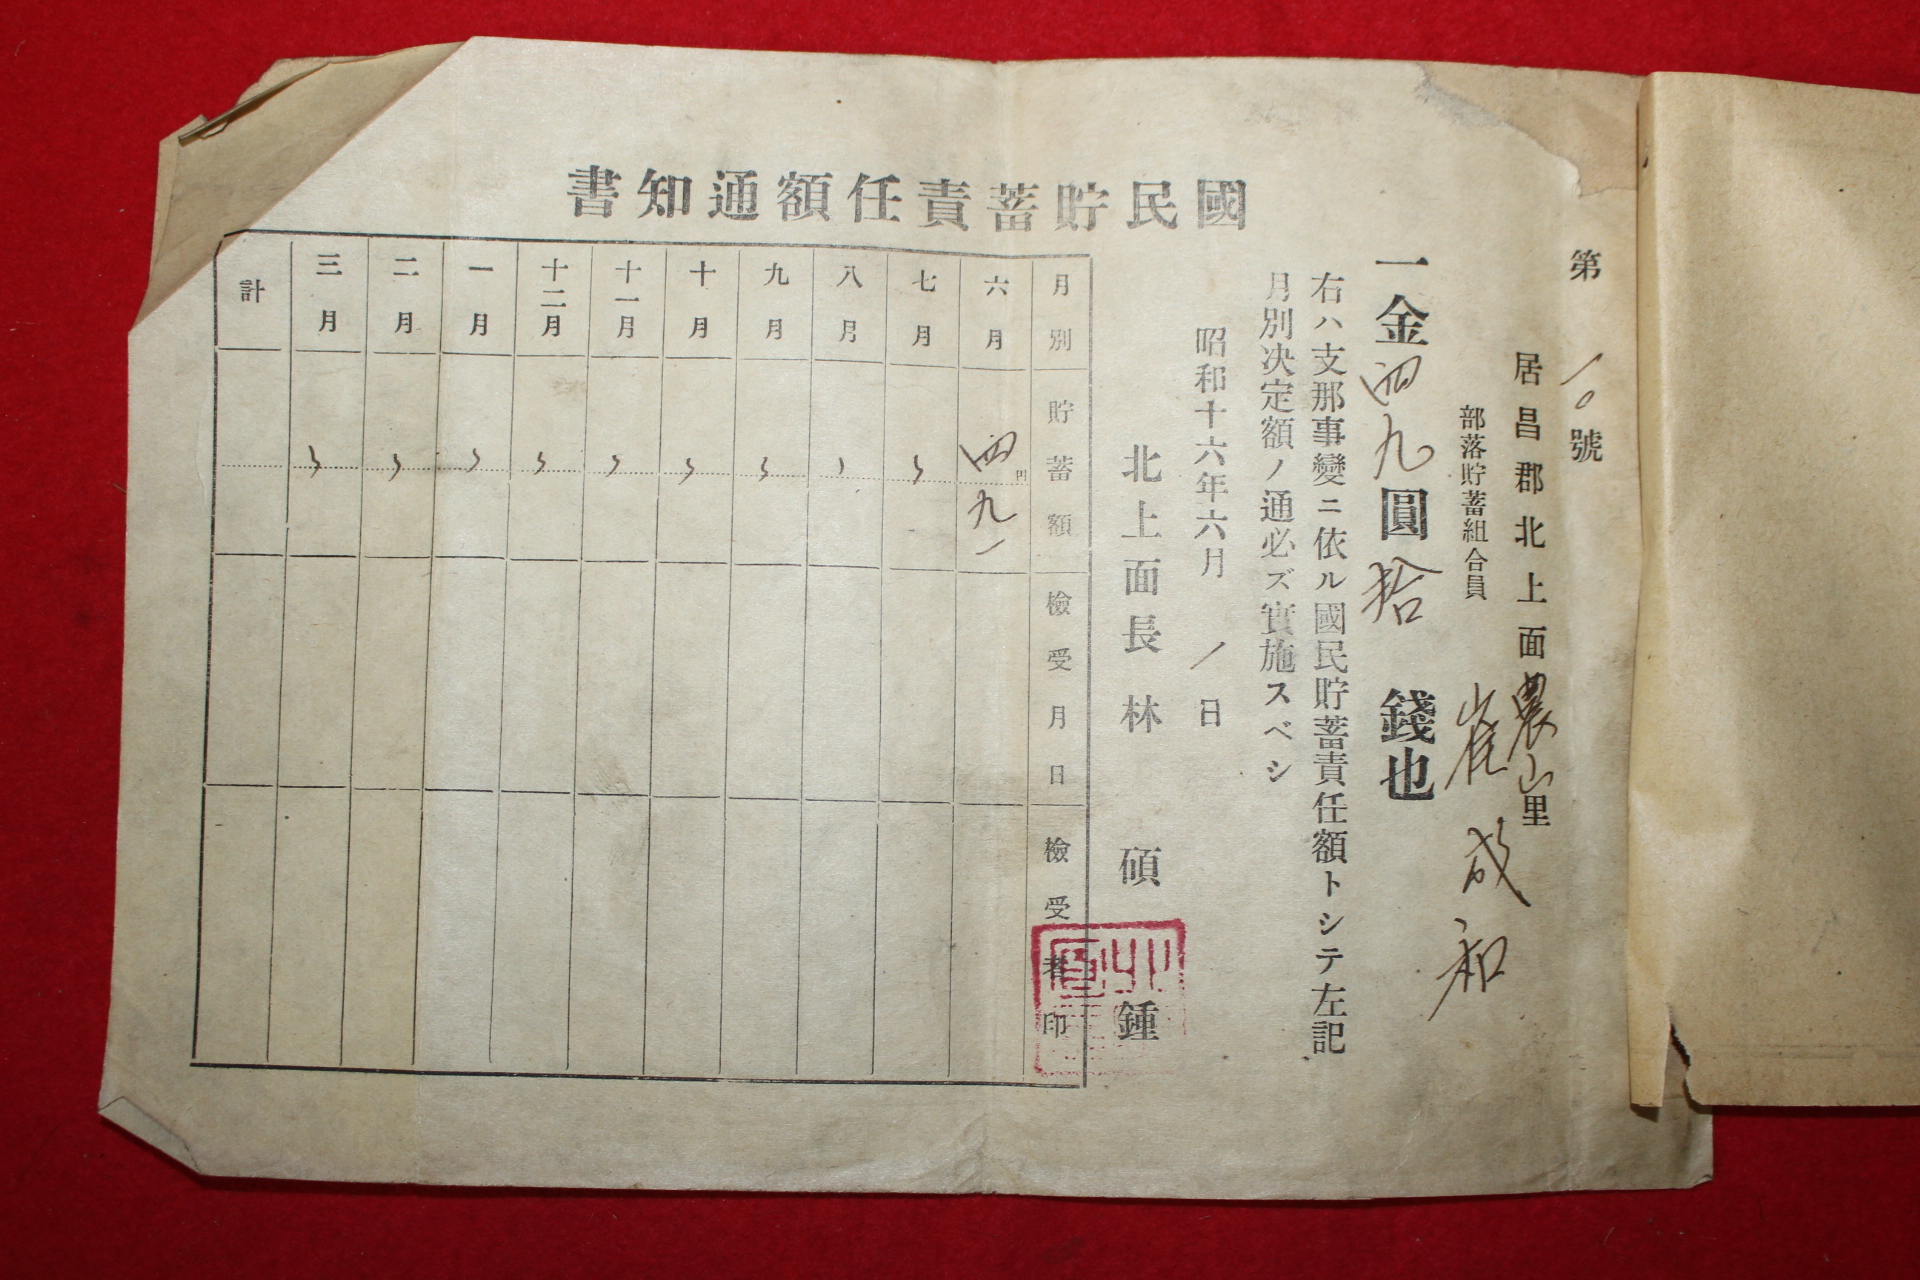 國民貯蓄責任額通知書
第一〇號
居昌郡北上面農山里
部落貯蓄組合員 崔成和
一金四九圓拾錢也
右ハ支那事變ニ依ル國民貯蓄責任額トシテ左記
月別決定額ノ通必ズ實施スベシ
昭和十六年六月一日
北上面長林碩鍾
月別 貯蓄額 檢受月日 檢受者印
六月 四円九一
七月 〃
八月 〃
九月 〃
十月 〃
十一月 〃
十二月 〃
一月 〃
二月 〃
三月 〃
計